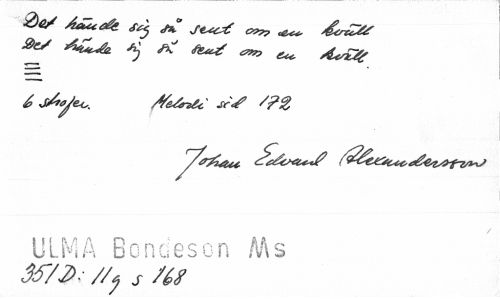 Det hände sig så sent om en kväll
Det hände sig så sent om en kväll.
6 strofer. Melodi sid 172
Johan Edvard Alexandersson
ULMA Bondeson Ms
351 D: 11 g s 168